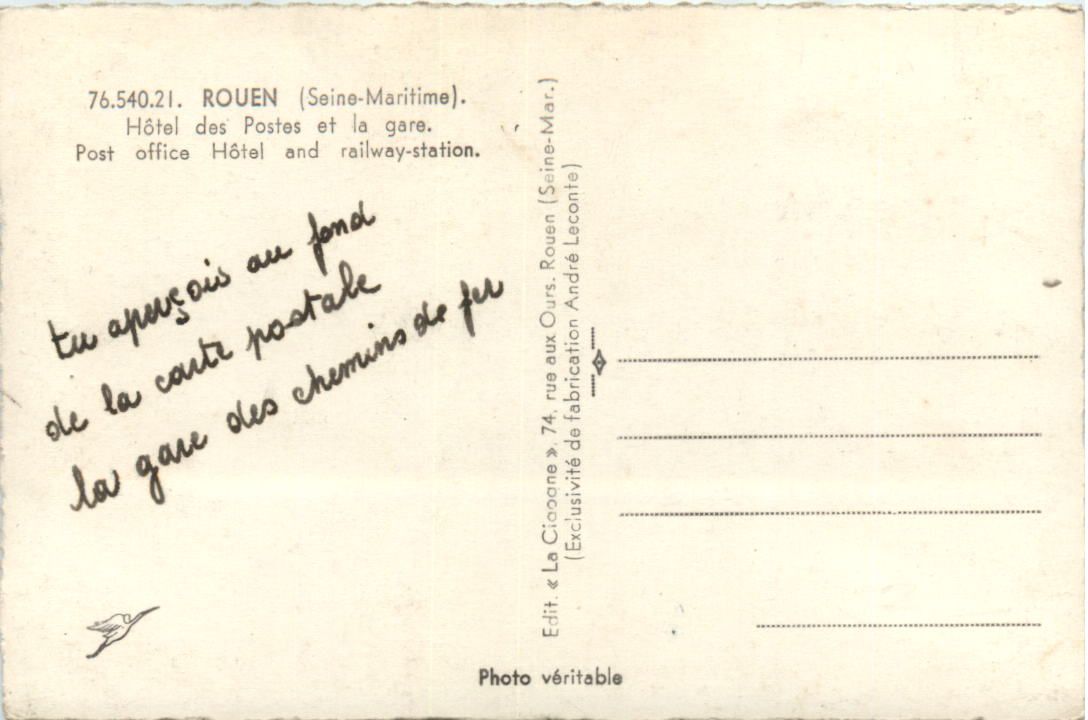 76.540.21. ROUEN (Seine-Maritime).
Hôtel des Postes et la gare.
Post office Hôtel and railway-station.
tu aperçois au fond
de la carte postale
la gare des chemins de fer
Edit. « La Cigogne », 74, rue aux Ours. Rouen (Seine-Mar.)
(Exclusivité de fabrication André Leconte)
Photo véritable